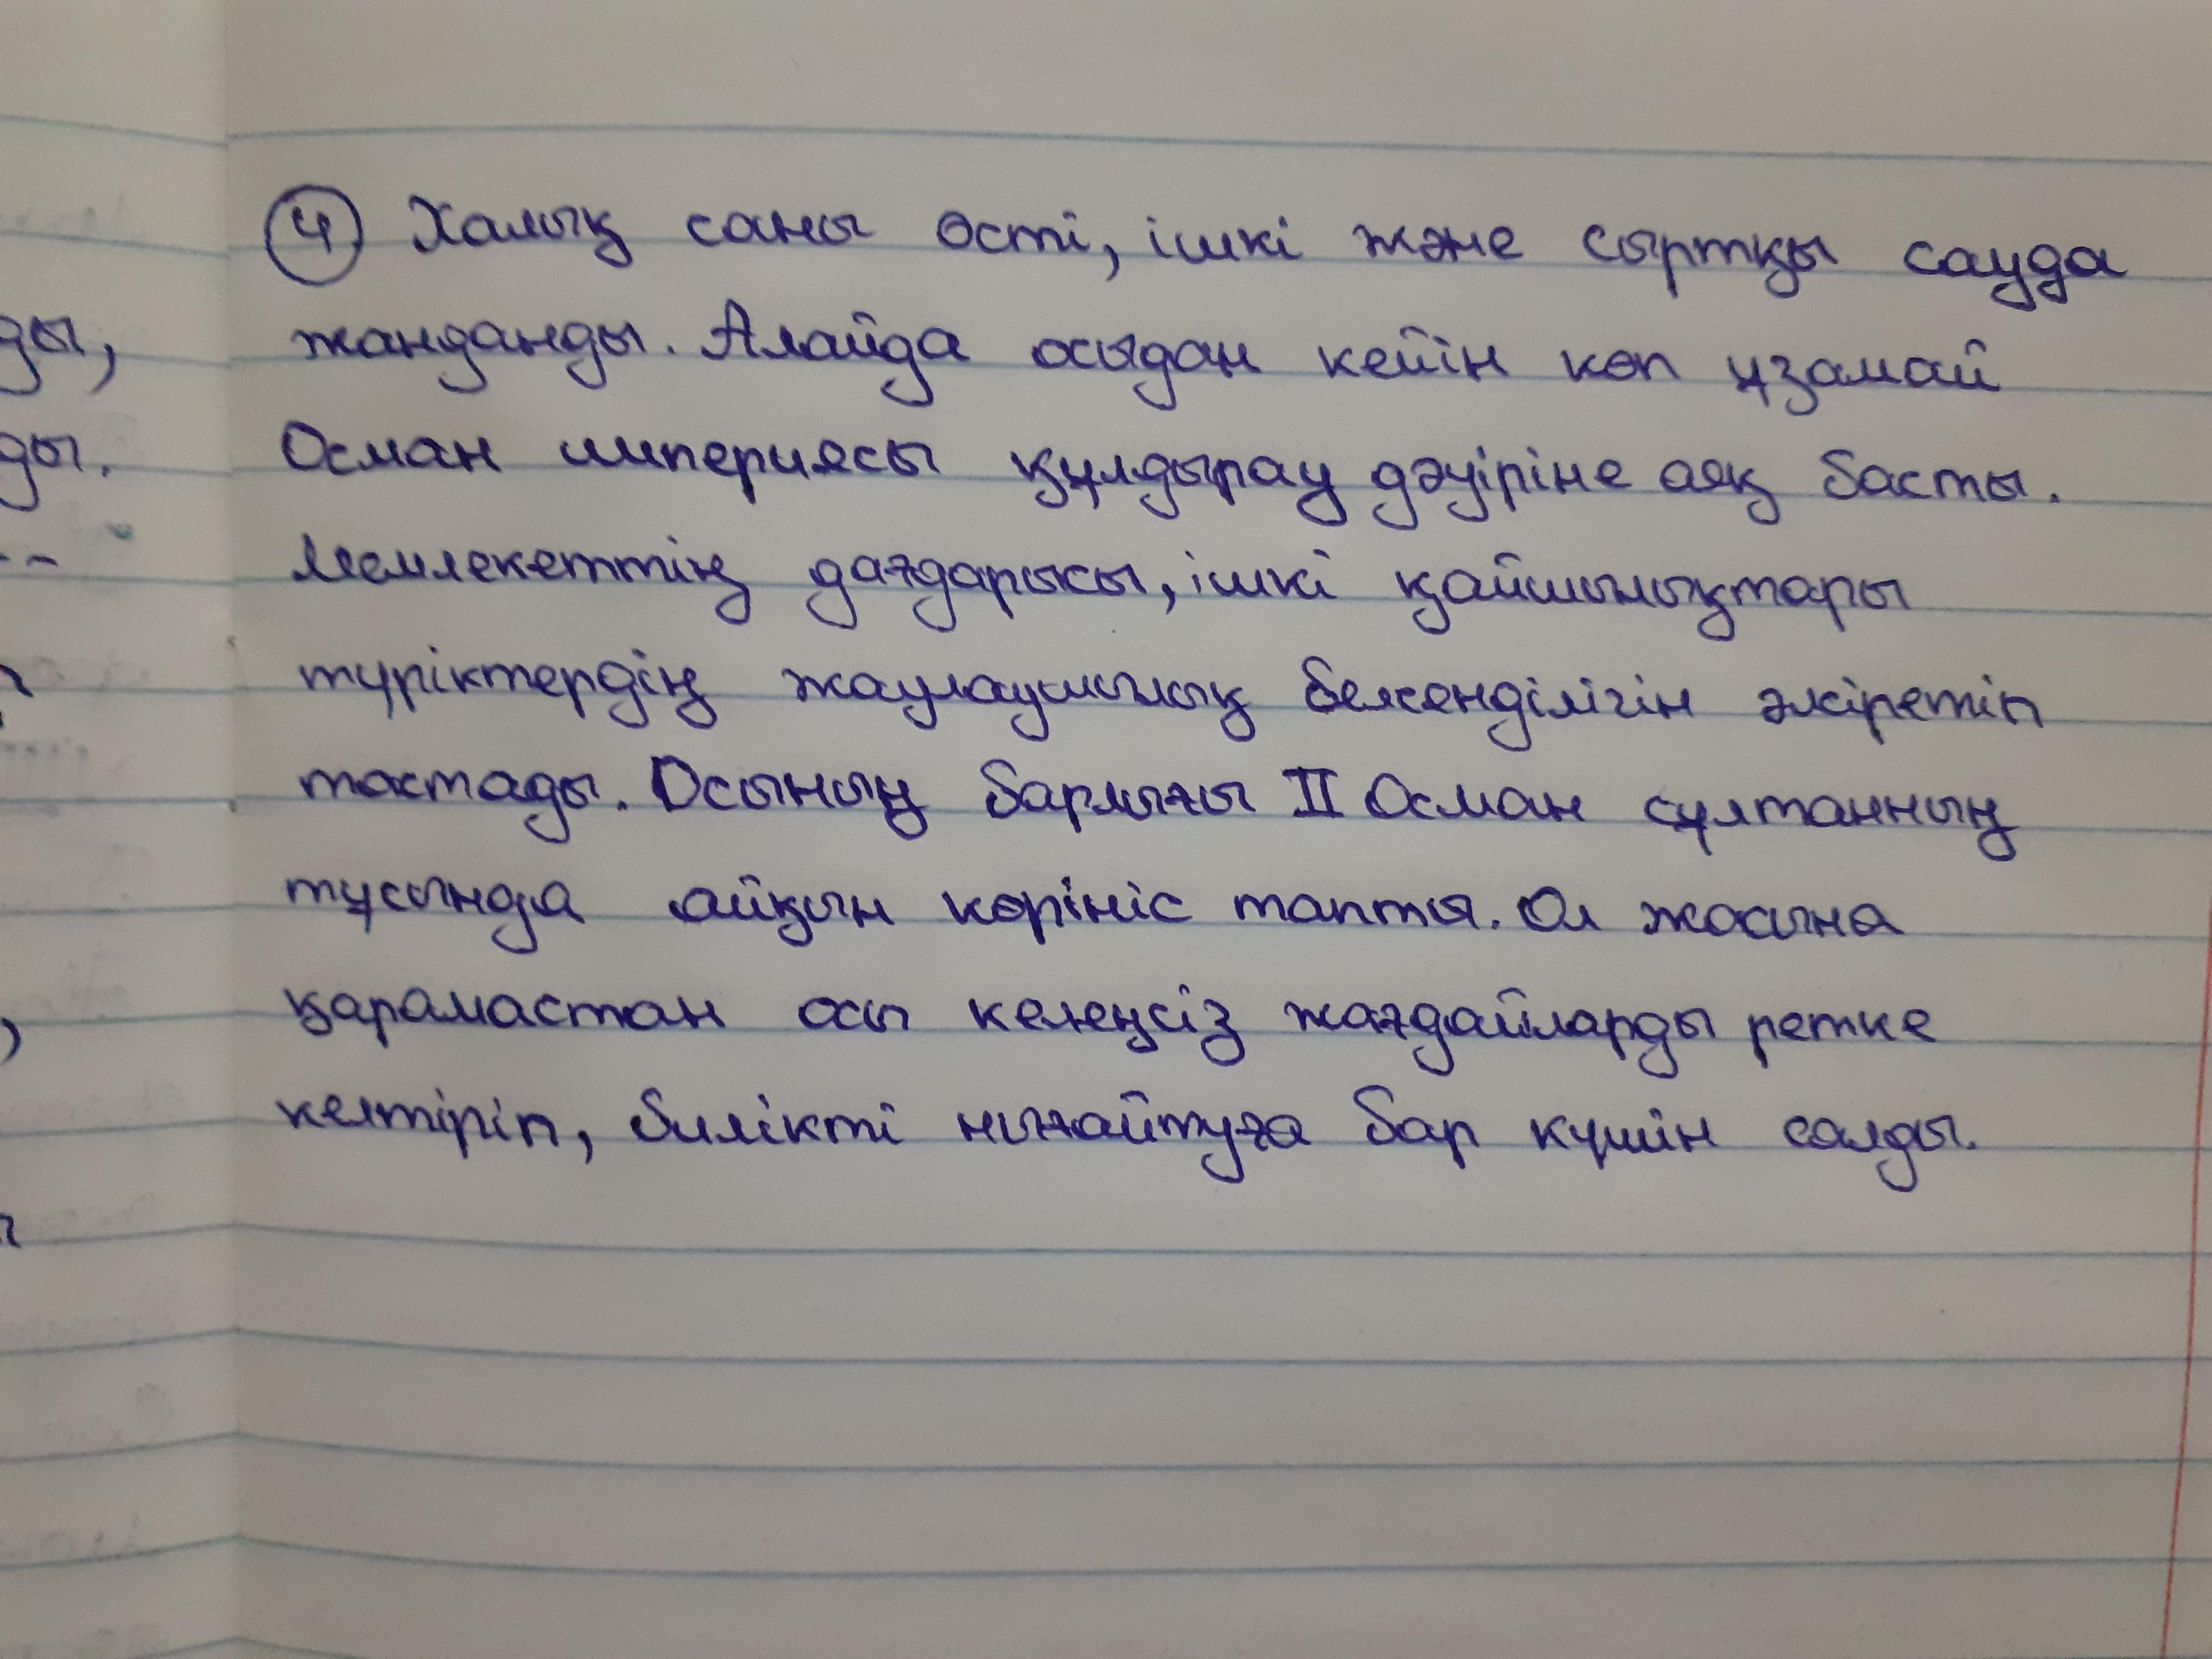 ④ Халық саны өсті, ішкі және сыртқы сауда
жанданды. Алайда осыдан кейін көп ұзамай
Осман империясы құлдырау дәуіріне аяқ басты.
Мемлекеттің дағдарысы, ішкі қайшылықтары
түріктердің жаулаушылық белсенділігін әлсіретіп
тастады. Осының барлығы II Осман сұлтанның
тұсында айқын көрініс тапты. Ол жасына
қарамастан осы келеңсіз жағдайларды ретке
келтіріп, билікті нығайтуға бар күшін салды.
ды,
ды.